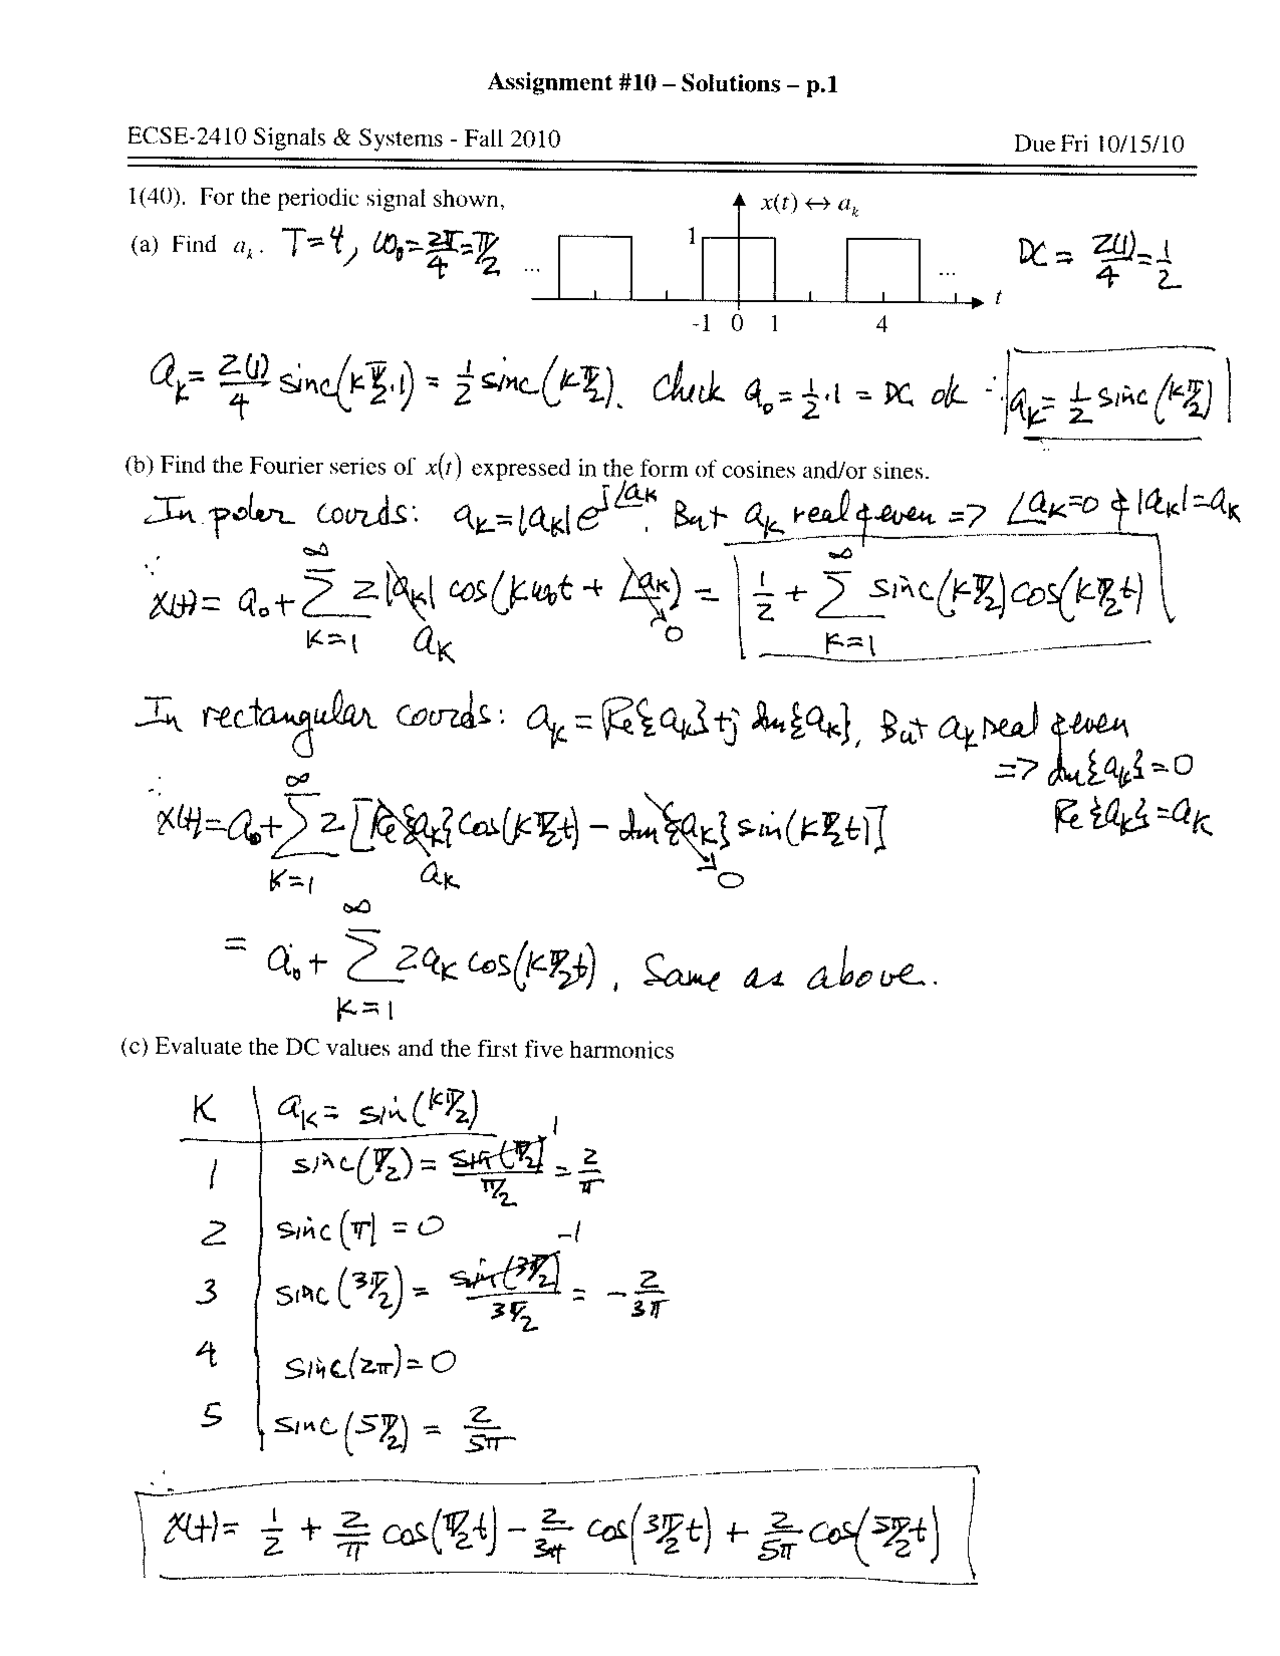 Assignment #10 – Solutions – p.1
ECSE-2410 Signals & Systems - Fall 2010 Due Fri 10/15/10
1(40). For the periodic signal shown, x(t) ↔ a_k
(a) Find a_k. T=4, ω₀=2π/4=π/2 ... 1 ... t DC = 2(1)/4 = 1/2
-1 0 1 4
a_k = 2(1)/4 sinc(kπ/2·1) = 1/2 sinc(kπ/2). Check a₀ = 1/2·1 = DC ok ∴ a_k = 1/2 sinc(kπ/2)
(b) Find the Fourier series of x(t) expressed in the form of cosines and/or sines.
In polar coords: a_k = |a_k|e^{j∠a_k}. But a_k real & even => ∠a_k=0 & |a_k|=a_k
∴ x(t) = a₀ + ∑_{k=1}^{∞} 2|a_k| cos(kω₀t + ∠a_k) = 1/2 + ∑_{k=1}^{∞} sinc(kπ/2)cos(kπ/2 t)
a_k 0
In rectangular coords: a_k = Re{a_k}+j Im{a_k}, But a_k real & even
=> Im{a_k}=0
∴ x(t) = a₀ + ∑_{k=1}^{∞} 2[Re{a_k}cos(kπ/2 t) – Im{a_k} sin(kπ/2 t)] Re{a_k}=a_k
a_k 0
= a₀ + ∑_{k=1}^{∞} 2a_k cos(kπ/2 t), Same as above.
(c) Evaluate the DC values and the first five harmonics
K a_k = sin(kπ/2)
1 sinc(π/2) = sin(π/2)/(π/2) = 2/π 1
2 sinc(π) = 0
3 sinc(3π/2) = sin(3π/2)/(3π/2) = -2/3π -1
4 sinc(2π) = 0
5 sinc(5π/2) = 2/5π
∴ x(t) = 1/2 + 2/π cos(π/2 t) – 2/3π cos(3π/2 t) + 2/5π cos(5π/2 t)